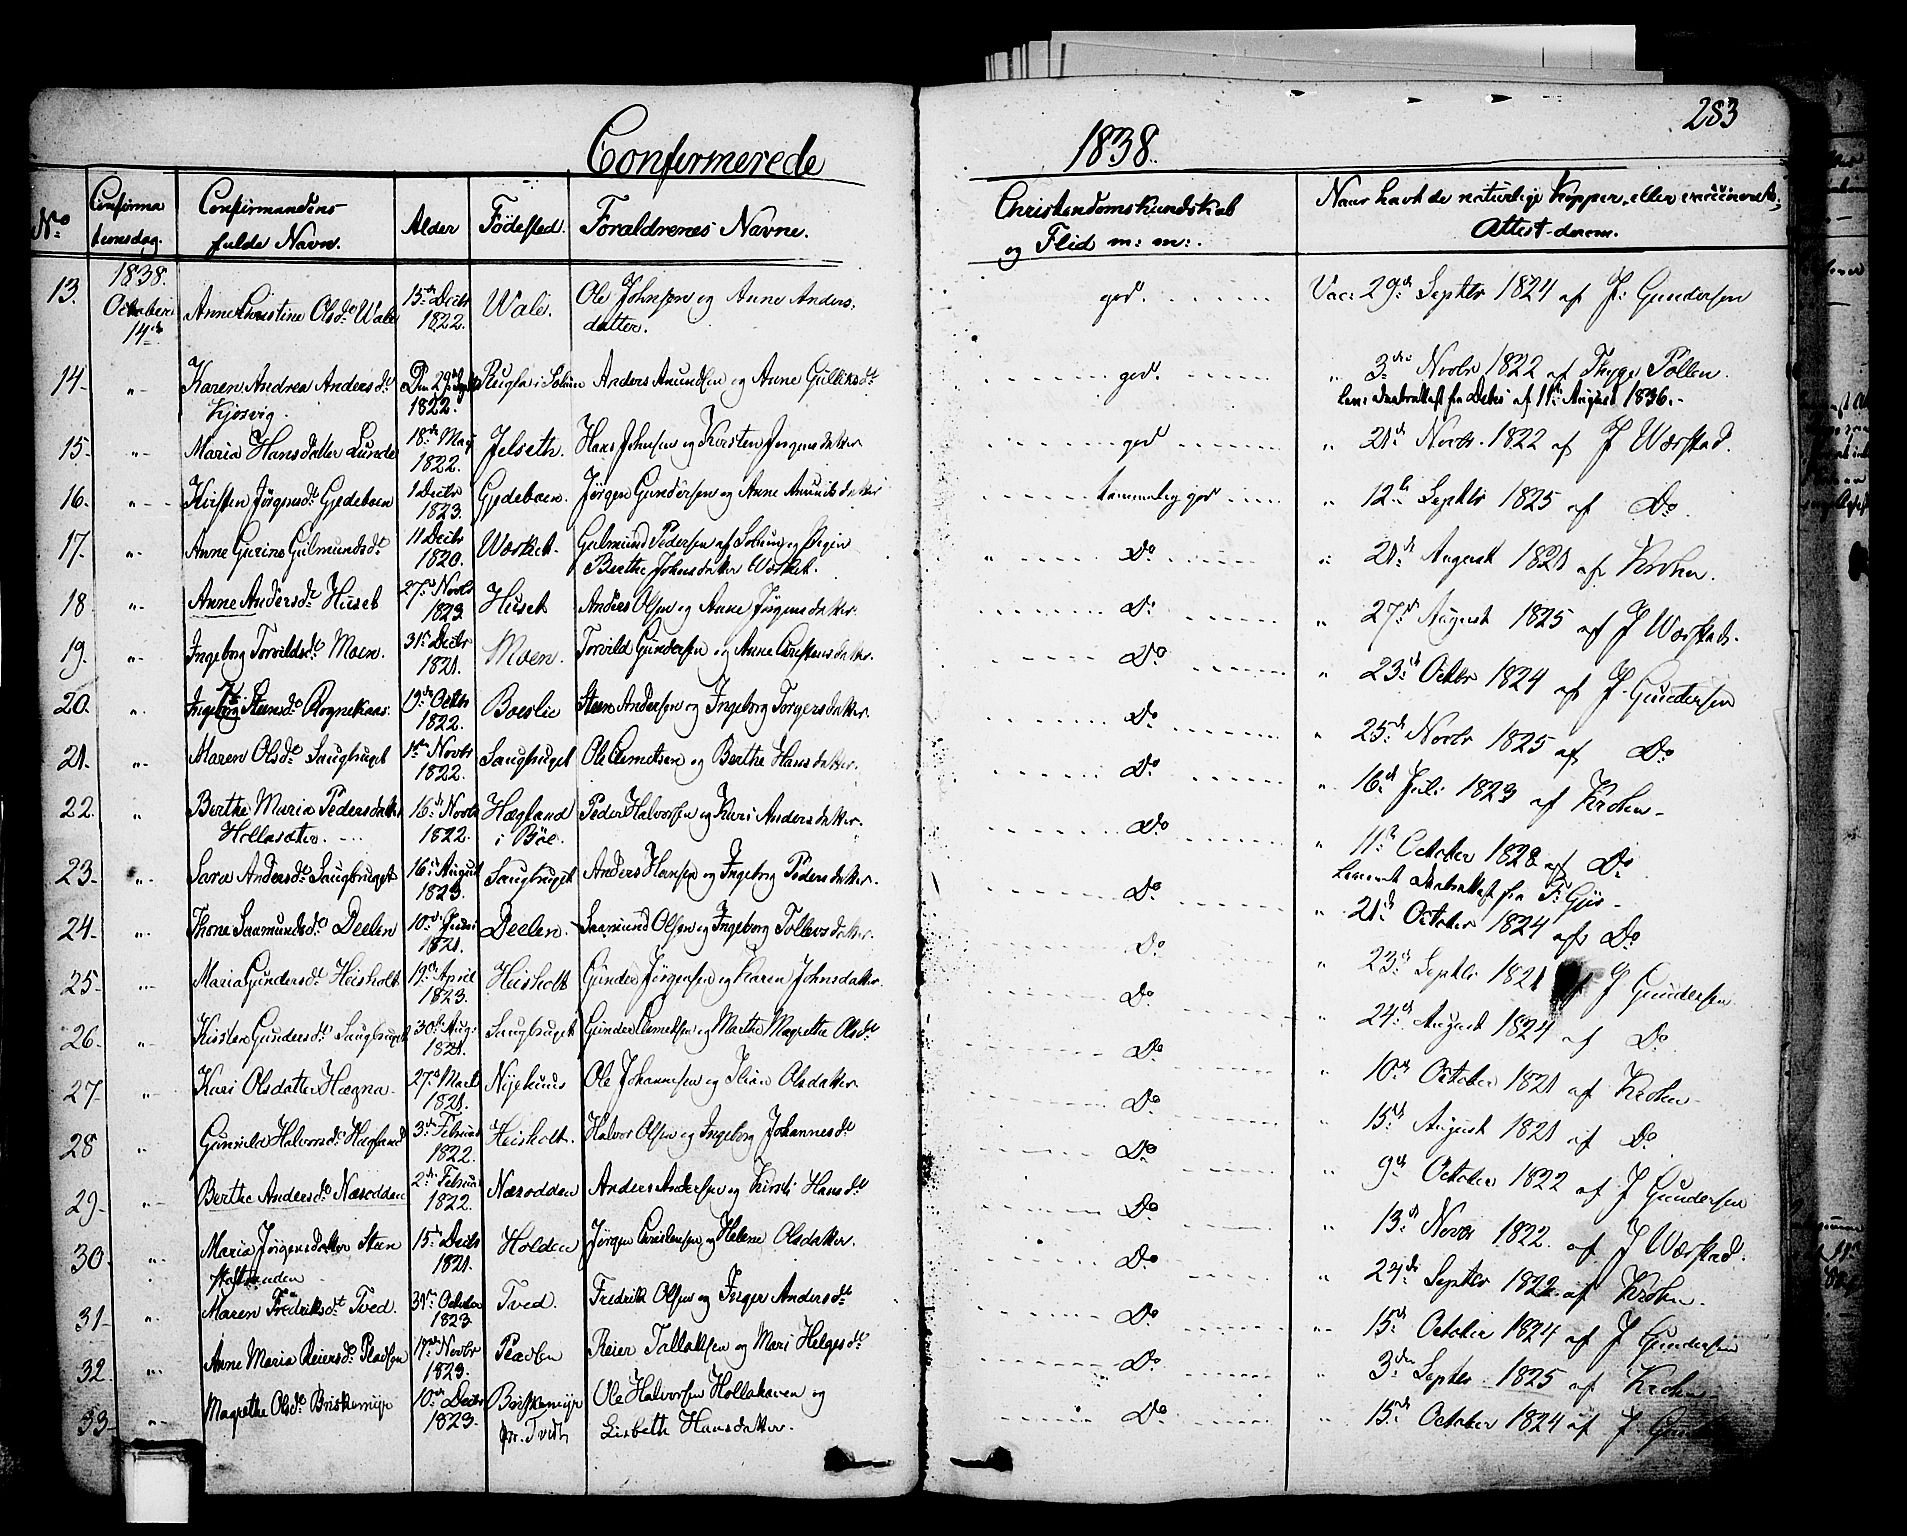 283
Confirmerede 1838.
No
Confirmationsdag.
Confirmandens fulde Navn.
Alder
Fødested.
Forældrenes Navne.
Christendomskundskab og Flid m: m:.
Naar havt de naturlige Kopper, eller vaccinerede, Attest derom.
13. 1838. October 14de Anne Christine Olsdr Wale 15de Decbr 1822. Wale. Ole Johnsen og Anne Andersdatter. god. Vac: 29de Septbr 1824 af J: Gundersen
14. " Karen Andrea Andersdr Kjosvig. Den 29de 1822. i Solum Anders Amundsen og Anne Gulliksdr god. " 3die Novbr 1822 af Thygge Pollen.
af 11te August 1836.
15. " Maria Hansdatter Lunde 18de May 1822. Jelseth. Hans Johnsen og Kirsten Jørgensdatter god " 21de Novbr. 1822 af J Wærstad.
16. " Kirsten Jørgensdr Gjedeboen 1 Decbr 1823. Gjedeboen. Jørgen Gundersen og Anne Amundsdatter temmelig god " 12te Septbr 1825 af Do
17. " Anne Gurine Gulmundsdr 11 Decbr 1820. Værket. Gulmund Pedersen af Solum og Pigen Berthe Johnsdatter Værket. Do " 21de August 1821 af Krohn.
18 " Anne Andersdr Huset 27de Novbr 1823. Huset Anders Olsen og Anne Jørgensdatter. Do " 27de August 1825 af J Wærstad.
19. " Ingeborg Torvildsdr Moen. 31te Decbr 1821. Moen. Torvild Gundersen og Anne Christensdatter. Do " 23de Octbr 1824 af J. Gundersen
20. " Ingeborg Steensdr Rognekaas. 13de Octbr 1822. Boeslie Steen Andersen og Ingeborg Torgersdatter. Do " 25de Novbr 1825 af Do
21. " Maren Olsdr Saugbruget 1ste Novbr 1822. Saugbruget Ole Clemetsen og Berthe Hansdatter. Do " 16de Juli 1823 af Krohn.
22. " Berthe Maria Pedersdatter Hollasæter. 16de Novbr 1822. Hægland i Böe. Peder Halvorsen og Kari Andersdatter. Do " 11te October 1828 af Do
23. " Sara Andersdr Saugbruget 16de August 1823. Saugbruget Anders Hansen og Ingeborg Pedersdatter. Do " 21de October 1824 af Do
24. " Thone Saamundsdr Deelen 10de 1821. Deelen. Saamund Olsen og Ingeborg Tollevsdatter. Do " 23de Septbr 1821 J Gundersen
25. " Maria Gundersdr Heisholt 19de April 1823. Heisholt Gunder Jørgensen og Karen Johnsdatter. Do " 24de August 1824 af Do
26. " Kirsten Gundersdr Saugbruget 30te Aug: 1821. Saugbruget Gunder Clemetsen og Marthe Magrethe Olsdr Do " 10de October 1821 af Krohn.
27. " Kari Olsdatter Hægna. 27de Marti 1821. Nyehuus Ole Johannesen og Olsdatter Do " 15de August 1821 af Do
28 " Gunnild Halvorsdr Hægland 3de Februar 1822. Heisholt. Halvor Olsen og Ingeborg Johannesdr Do " 9de October 1822 af J Gundersen
29. " Berthe Andersdr Næsodden 2den Februar 1822. Næsodden Anders Andersen og Kirsti Hansdr Do " 13de Novbr 1822. af J Wærstad.
30. " Maria Jørgensdatter Steenstadstranden 15de Decbr 1821. Holden Jørgen Christensen og Helene Olsdatter. Do " 24de Septbr 1822 af Krohn.
31. " Maren Fredriksdr Tved. 31te October 1823 Tved. Fredrik Olsen og Inger Andersdr Do " 15de October 1824 af J Gundersen
32. " Anne Maria Reiersdr Pladsen 17de Novbr 1823. Pladsen Reier Tallaksen og Mari Helgesdr Do " 3die Septbr 1825 af Krohn.
33. " Magrethe Olsdr Briskemyr 10de Decbr 1823. Briskemyr Ole Halvorsen Hollahaven og Lisbeth Hansdatter. Do " 15de October 1824 af J.